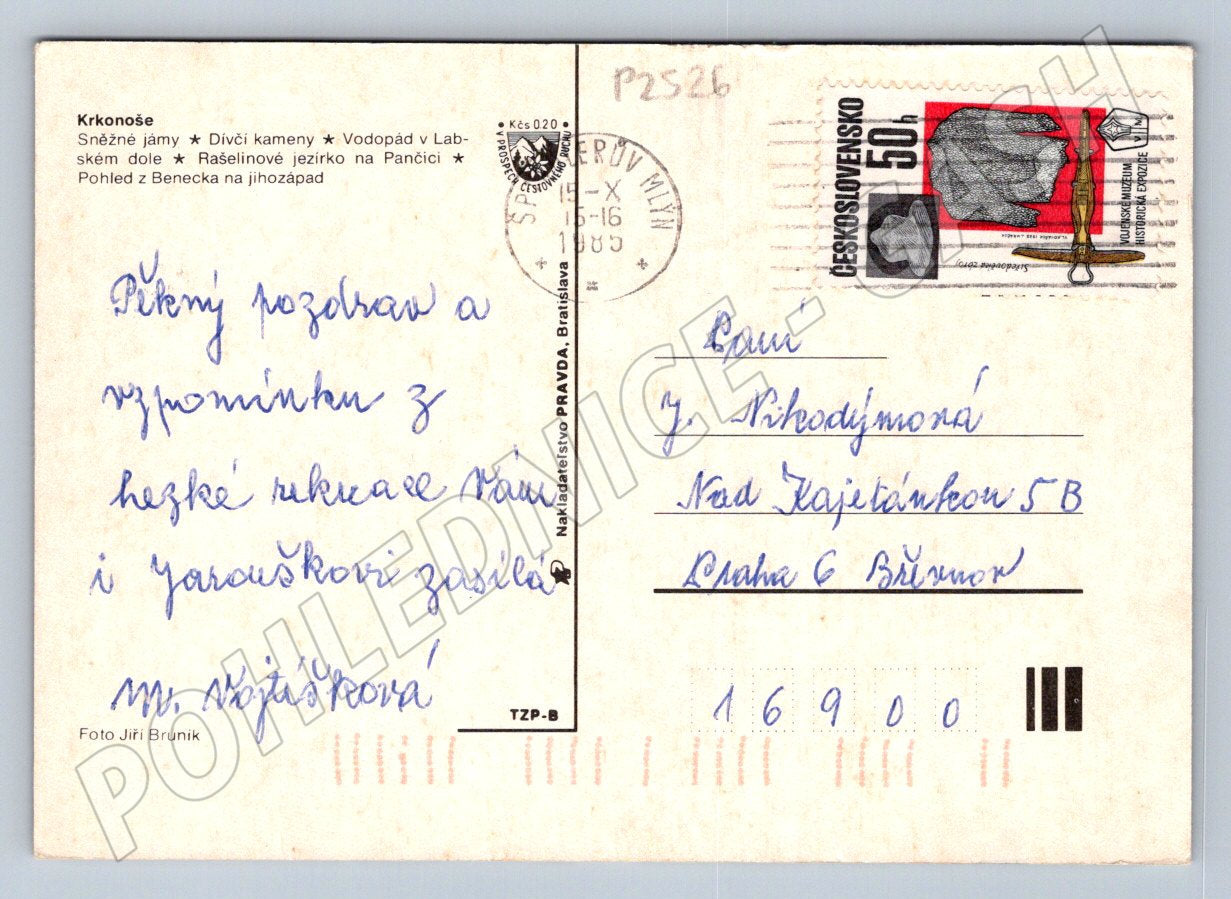 P2526
Krkonoše
Sněžné jámy ★ Dívčí kameny ★ Vodopád v Lab-
ském dole ★ Rašelinové jezírko na Pančici ★
Pohled z Benecka na jihozápad
• Kčs 0.20 •
V PROSPĚCH CESTOVNÉHO RUCHU
ŠP ERŮV MLÝN
15-X
15-16
1985
ČESKOSLOVENSKO
50 h
VOJENSKÉ MUZEUM
HISTORICKÁ EXPOZICE
Středověká zbroj
Pěkný pozdrav a
vzpomínku z
hezké rekreace Vám
i Jarouškovi zasílá
M. Vojtíšková
Foto Jiří Bruník
TZP-B
Nakladateľstvo PRAVDA, Bratislava
Paní
J. Nikodýmová
Nad Kajetánkou 5 B
Praha 6 Břevnov
16900
POHLEDNICE - CZ.CH